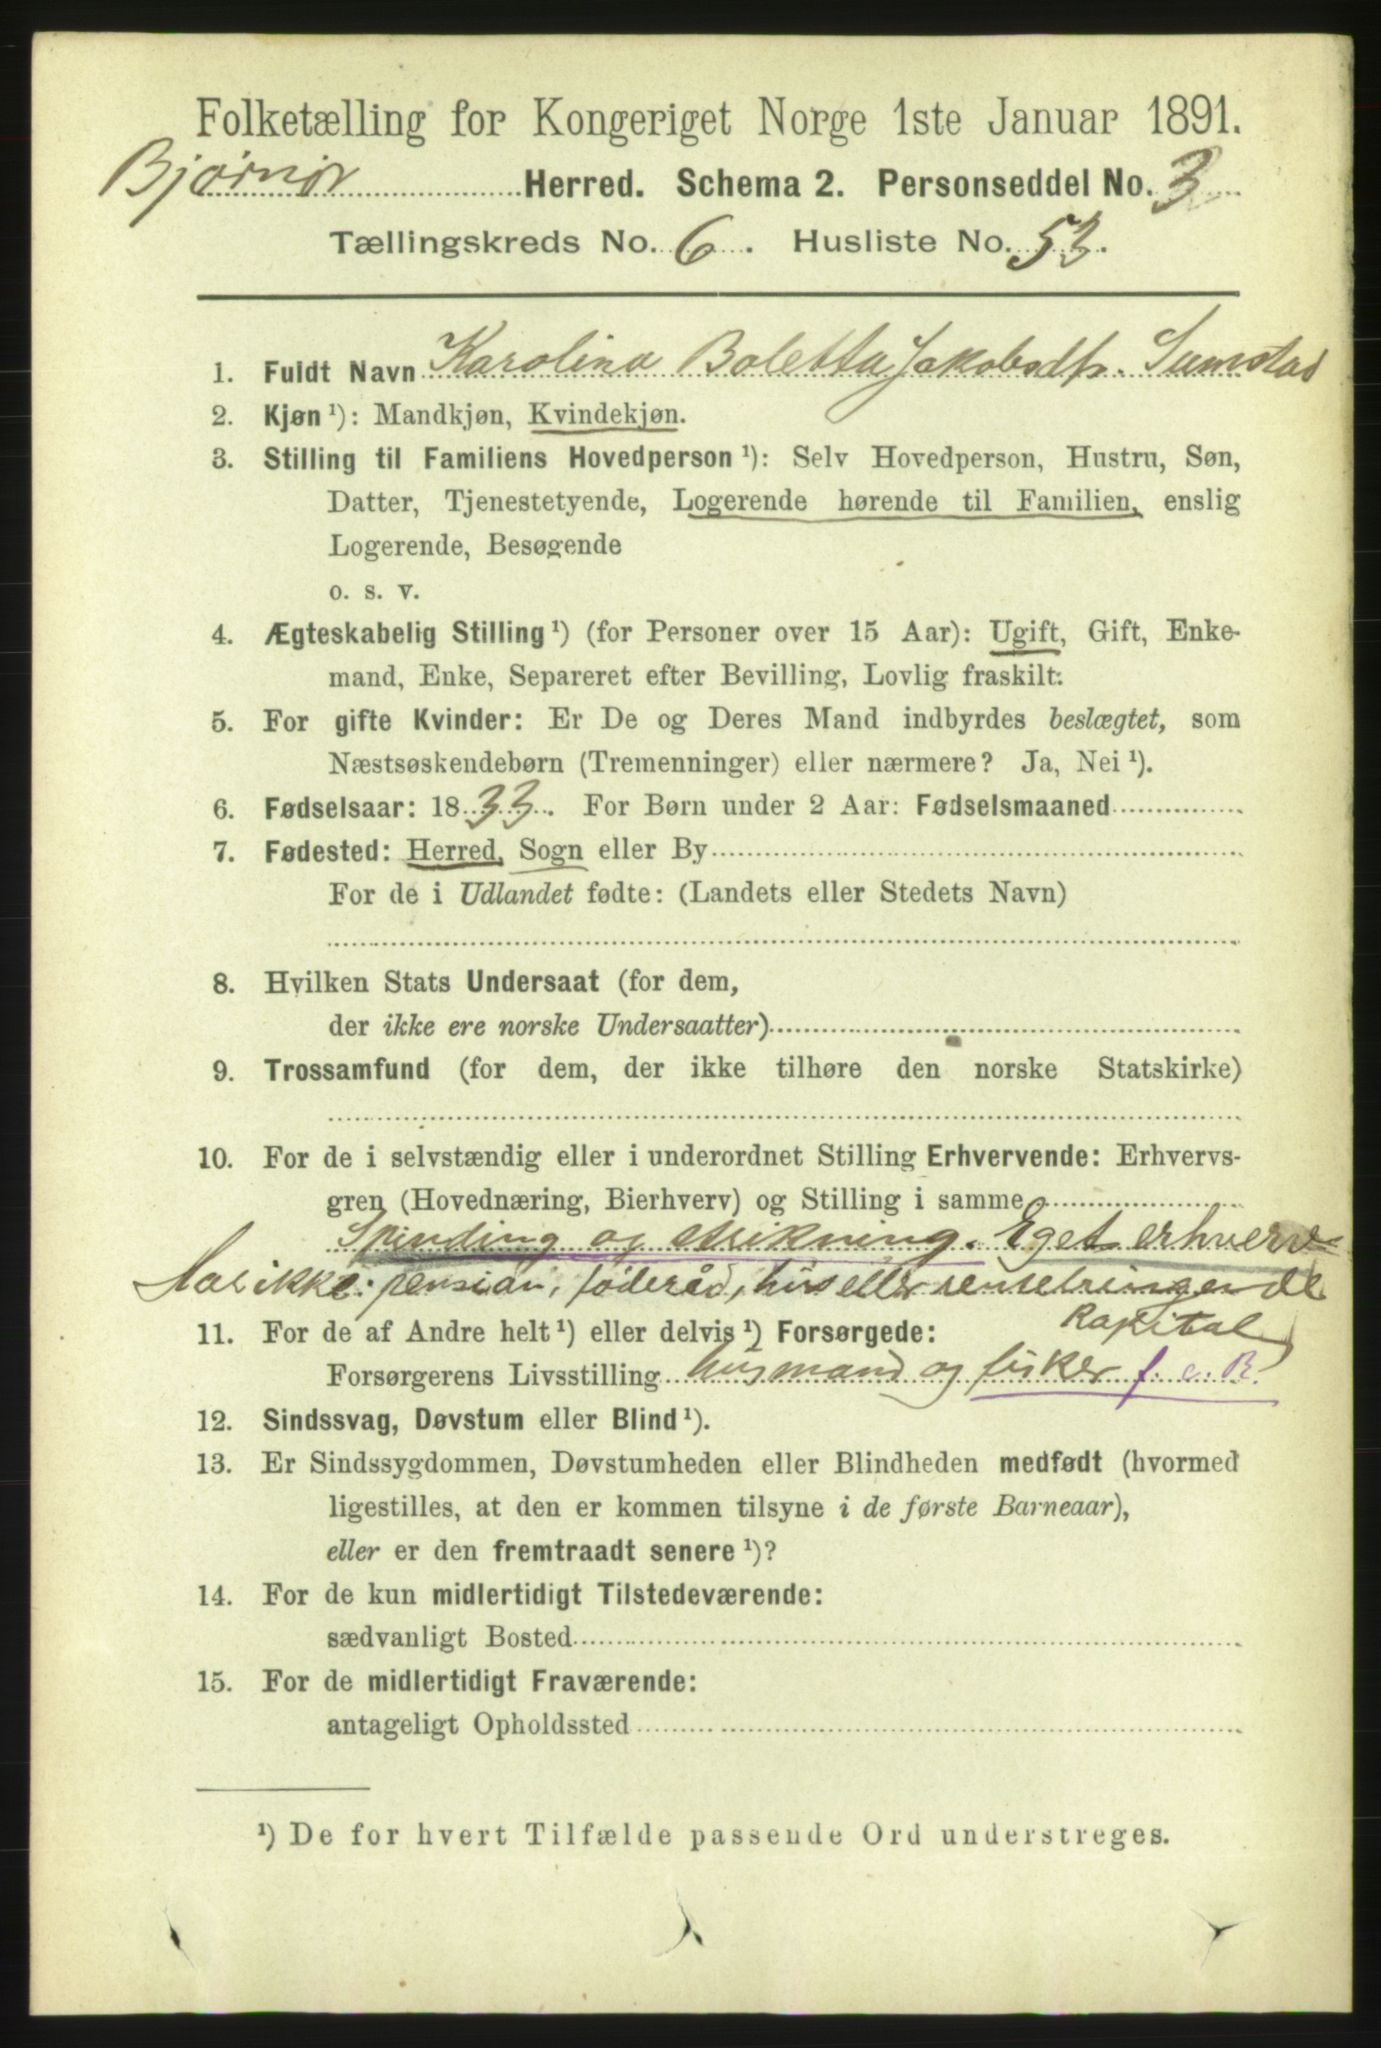 Folketælling for Kongeriget Norge 1ste Januar 1891.
Bjørnør Herred. Schema 2. Personseddel No. 3
Tællingskreds No. 6. Husliste No. 53.
1. Fuldt Navn Karolina Boletta Jakobsdtr. Sumstad
2. Kjøn ¹): Mandkjøn, Kvindekjøn.
3. Stilling til Familiens Hovedperson ¹): Selv Hovedperson, Hustru, Søn,
Datter, Tjenestetyende, Logerende hørende til Familien, enslig
Logerende, Besøgende
o. s. v.
4. Ægteskabelig Stilling ¹) (for Personer over 15 Aar): Ugift, Gift, Enke-
mand, Enke, Separeret efter Bevilling, Lovlig fraskilt.
5. For gifte Kvinder: Er De og Deres Mand indbyrdes beslægtet, som
Næstsøskendebørn (Tremenninger) eller nærmere? Ja, Nei ¹).
6. Fødselsaar: 1833. For Børn under 2 Aar: Fødselsmaaned
7. Fødested: Herred, Sogn eller By
For de i Udlandet fødte: (Landets eller Stedets Navn)
8. Hvilken Stats Undersaat (for dem,
der ikke ere norske Undersaatter)
9. Trossamfund (for dem, der ikke tilhøre den norske Statskirke)
10. For de i selvstændig eller i underordnet Stilling Erhvervende: Erhvervs-
gren (Hovednæring, Bierhverv) og Stilling i samme
Spinding og strikning. Eget erhverv
Har ikke: pension, föderåd, hus eller rentebringende
Kapital
11. For de af Andre helt ¹) eller delvis ¹) Forsørgede:
Forsørgerens Livsstilling husmand og fisker f. e. B.
12. Sindssvag, Døvstum eller Blind ¹).
13. Er Sindssygdommen, Døvstumheden eller Blindheden medfødt (hvormed
ligestilles, at den er kommen tilsyne i de første Barneaar),
eller er den fremtraadt senere ¹)?
14. For de kun midlertidigt Tilstedeværende:
sædvanligt Bosted
15. For de midlertidigt Fraværende:
antageligt Opholdssted
¹) De for hvert Tilfælde passende Ord understreges.